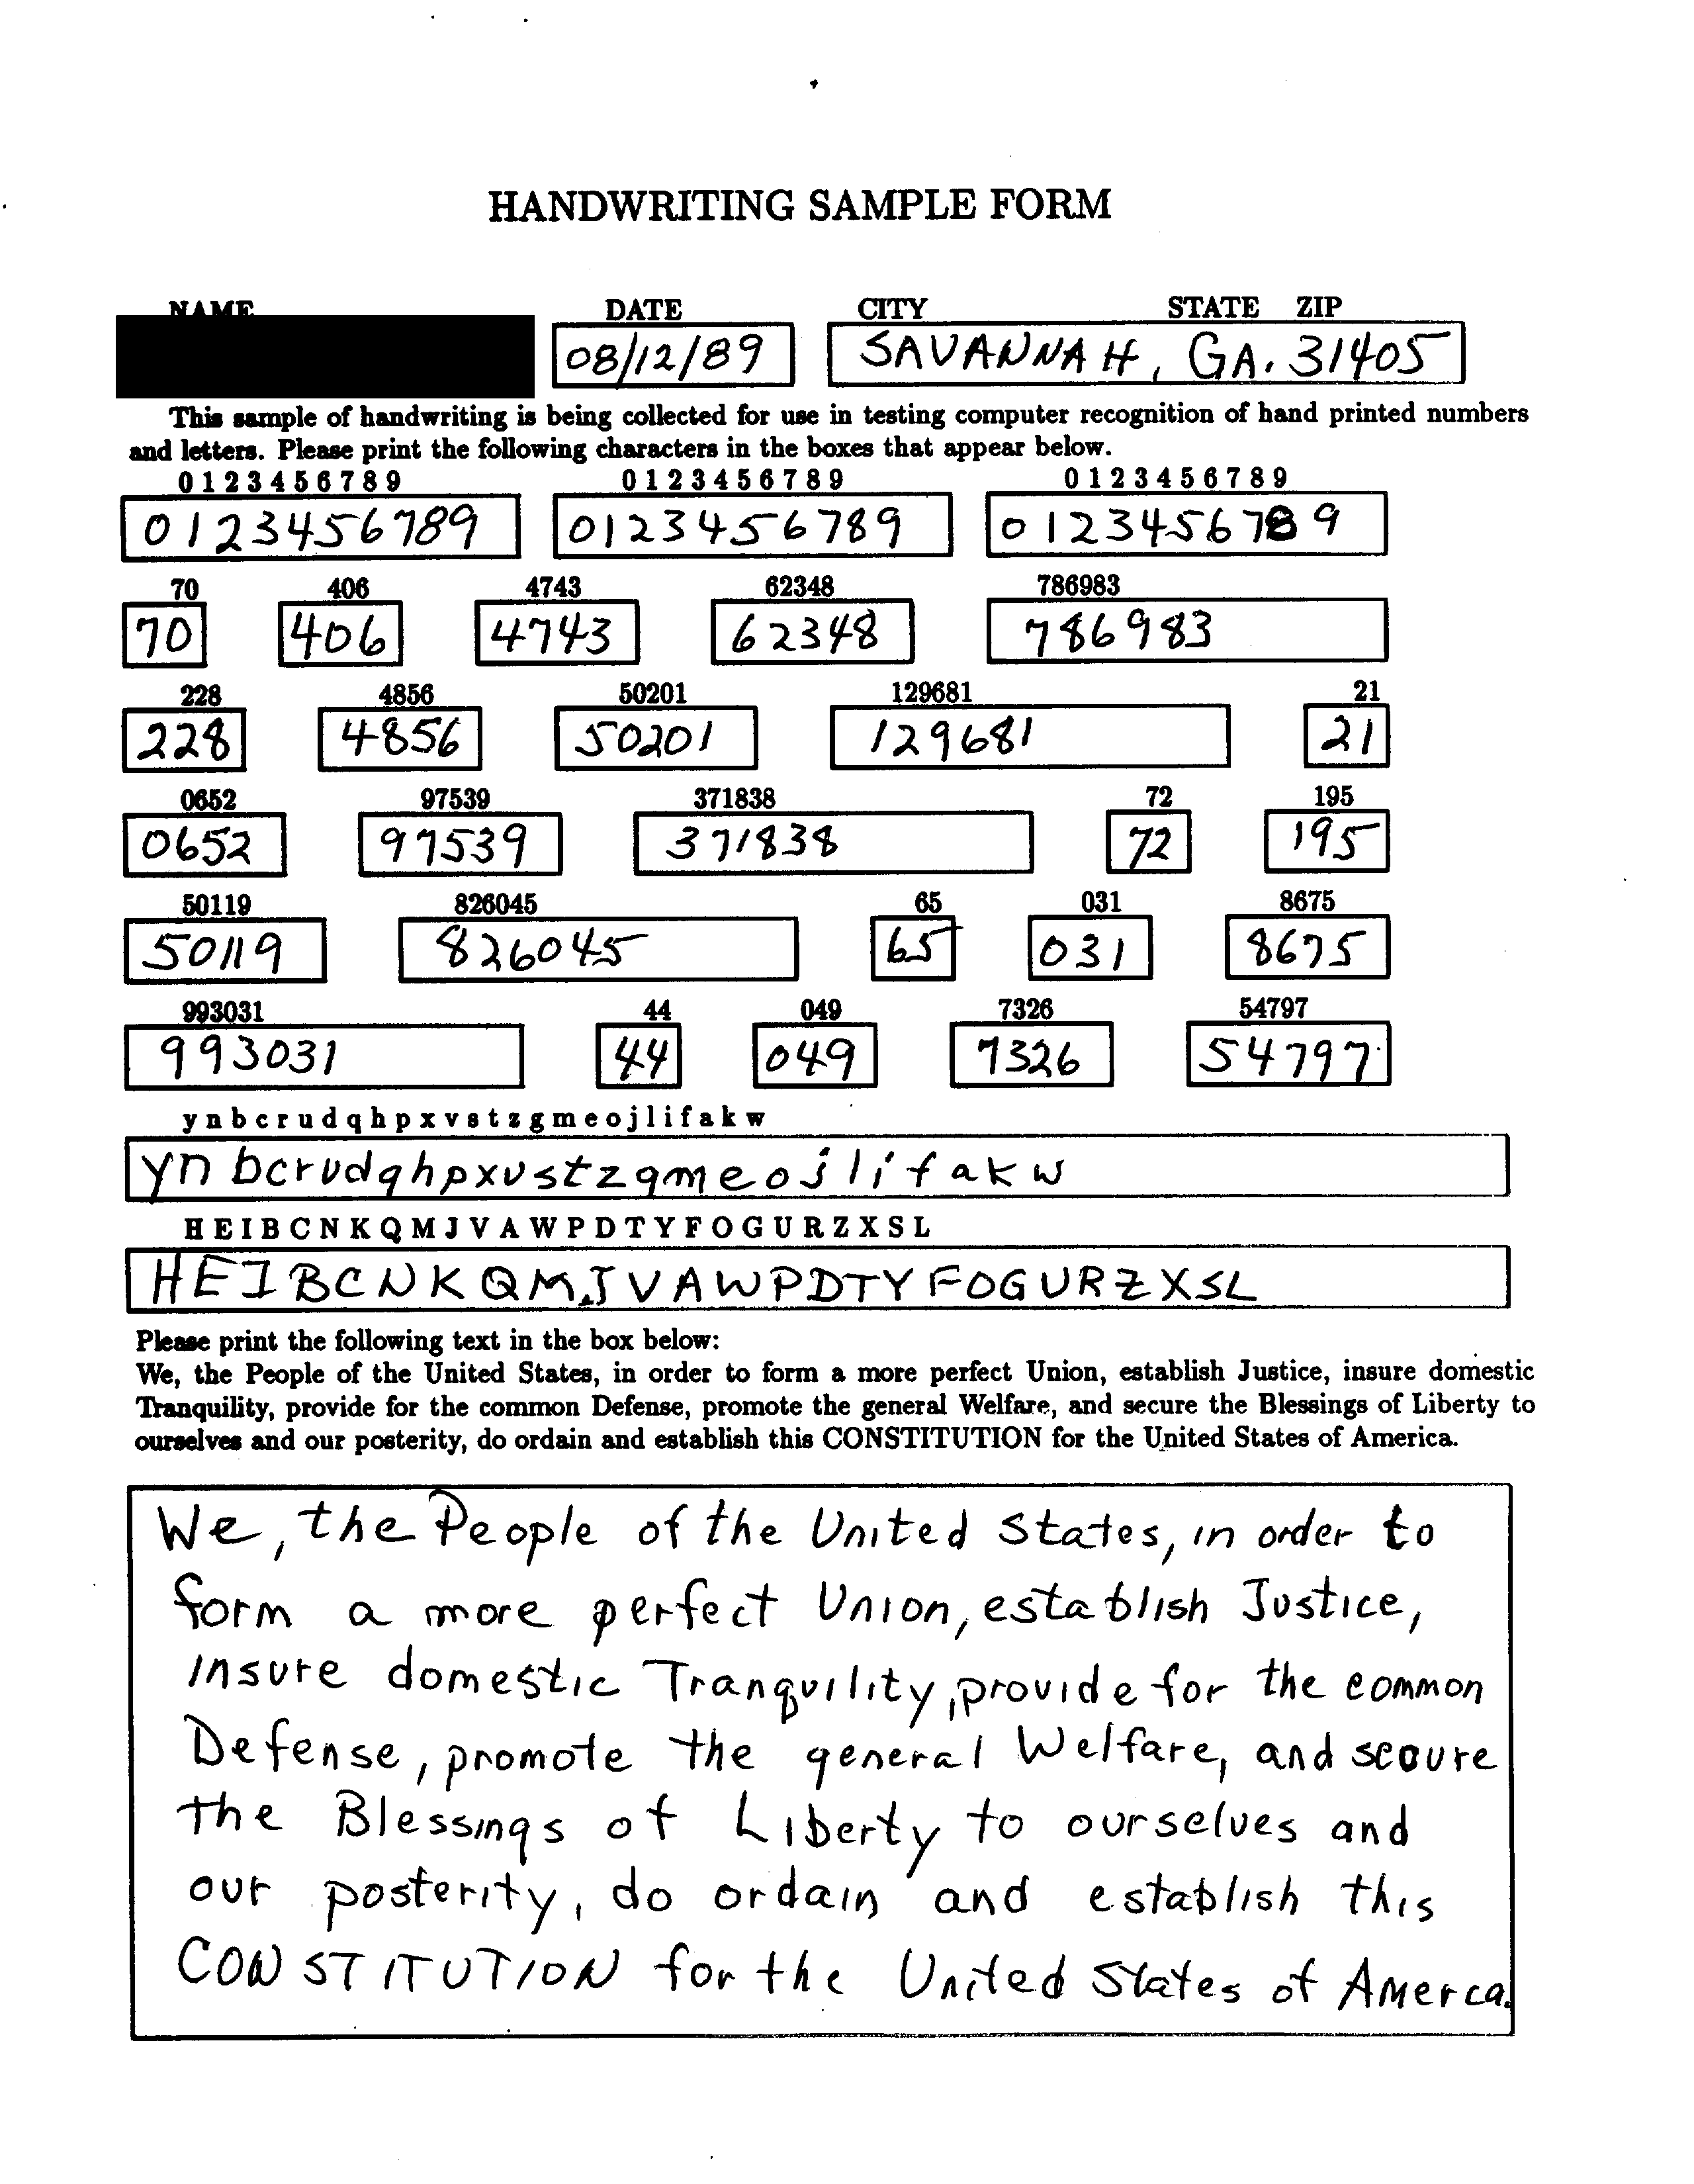 HANDWRITING SAMPLE FORM
NAME DATE CITY STATE ZIP
08/12/89 SAVANNAH, GA. 31405
This sample of handwriting is being collected for use in testing computer recognition of hand printed numbers
and letters. Please print the following characters in the boxes that appear below.
0 1 2 3 4 5 6 7 8 9 0 1 2 3 4 5 6 7 8 9 0 1 2 3 4 5 6 7 8 9
0123456789 0123456789 0123456789
70 406 4743 62348 786983
70 406 4743 62348 786983
228 4856 50201 129681 21
228 4856 50201 129681 21
0652 97539 371838 72 195
0652 97539 371838 72 195
50119 826045 65 031 8675
50119 826045 65 031 8675
993031 44 049 7326 54797
993031 44 049 7326 54797
y n b c r u d q h p x v s t z g m e o j l i f a k w
yn bcrudqhpxvstzgmeojlifakw
H E I B C N K Q M J V A W P D T Y F O G U R Z X S L
HEIBCNKQMJVAWPDTYFOGURZXSL
Please print the following text in the box below:
We, the People of the United States, in order to form a more perfect Union, establish Justice, insure domestic
Tranquility, provide for the common Defense, promote the general Welfare, and secure the Blessings of Liberty to
ourselves and our posterity, do ordain and establish this CONSTITUTION for the United States of America.
We, the People of the United States, in order to
form a more perfect Union, establish Justice,
insure domestic Tranquility, provide for the common
Defense, promote the general Welfare, and scoure
the Blessings of Liberty to ourselves and
our posterity, do ordain and establish this
CONSTITUTION for the United States of Amerca.